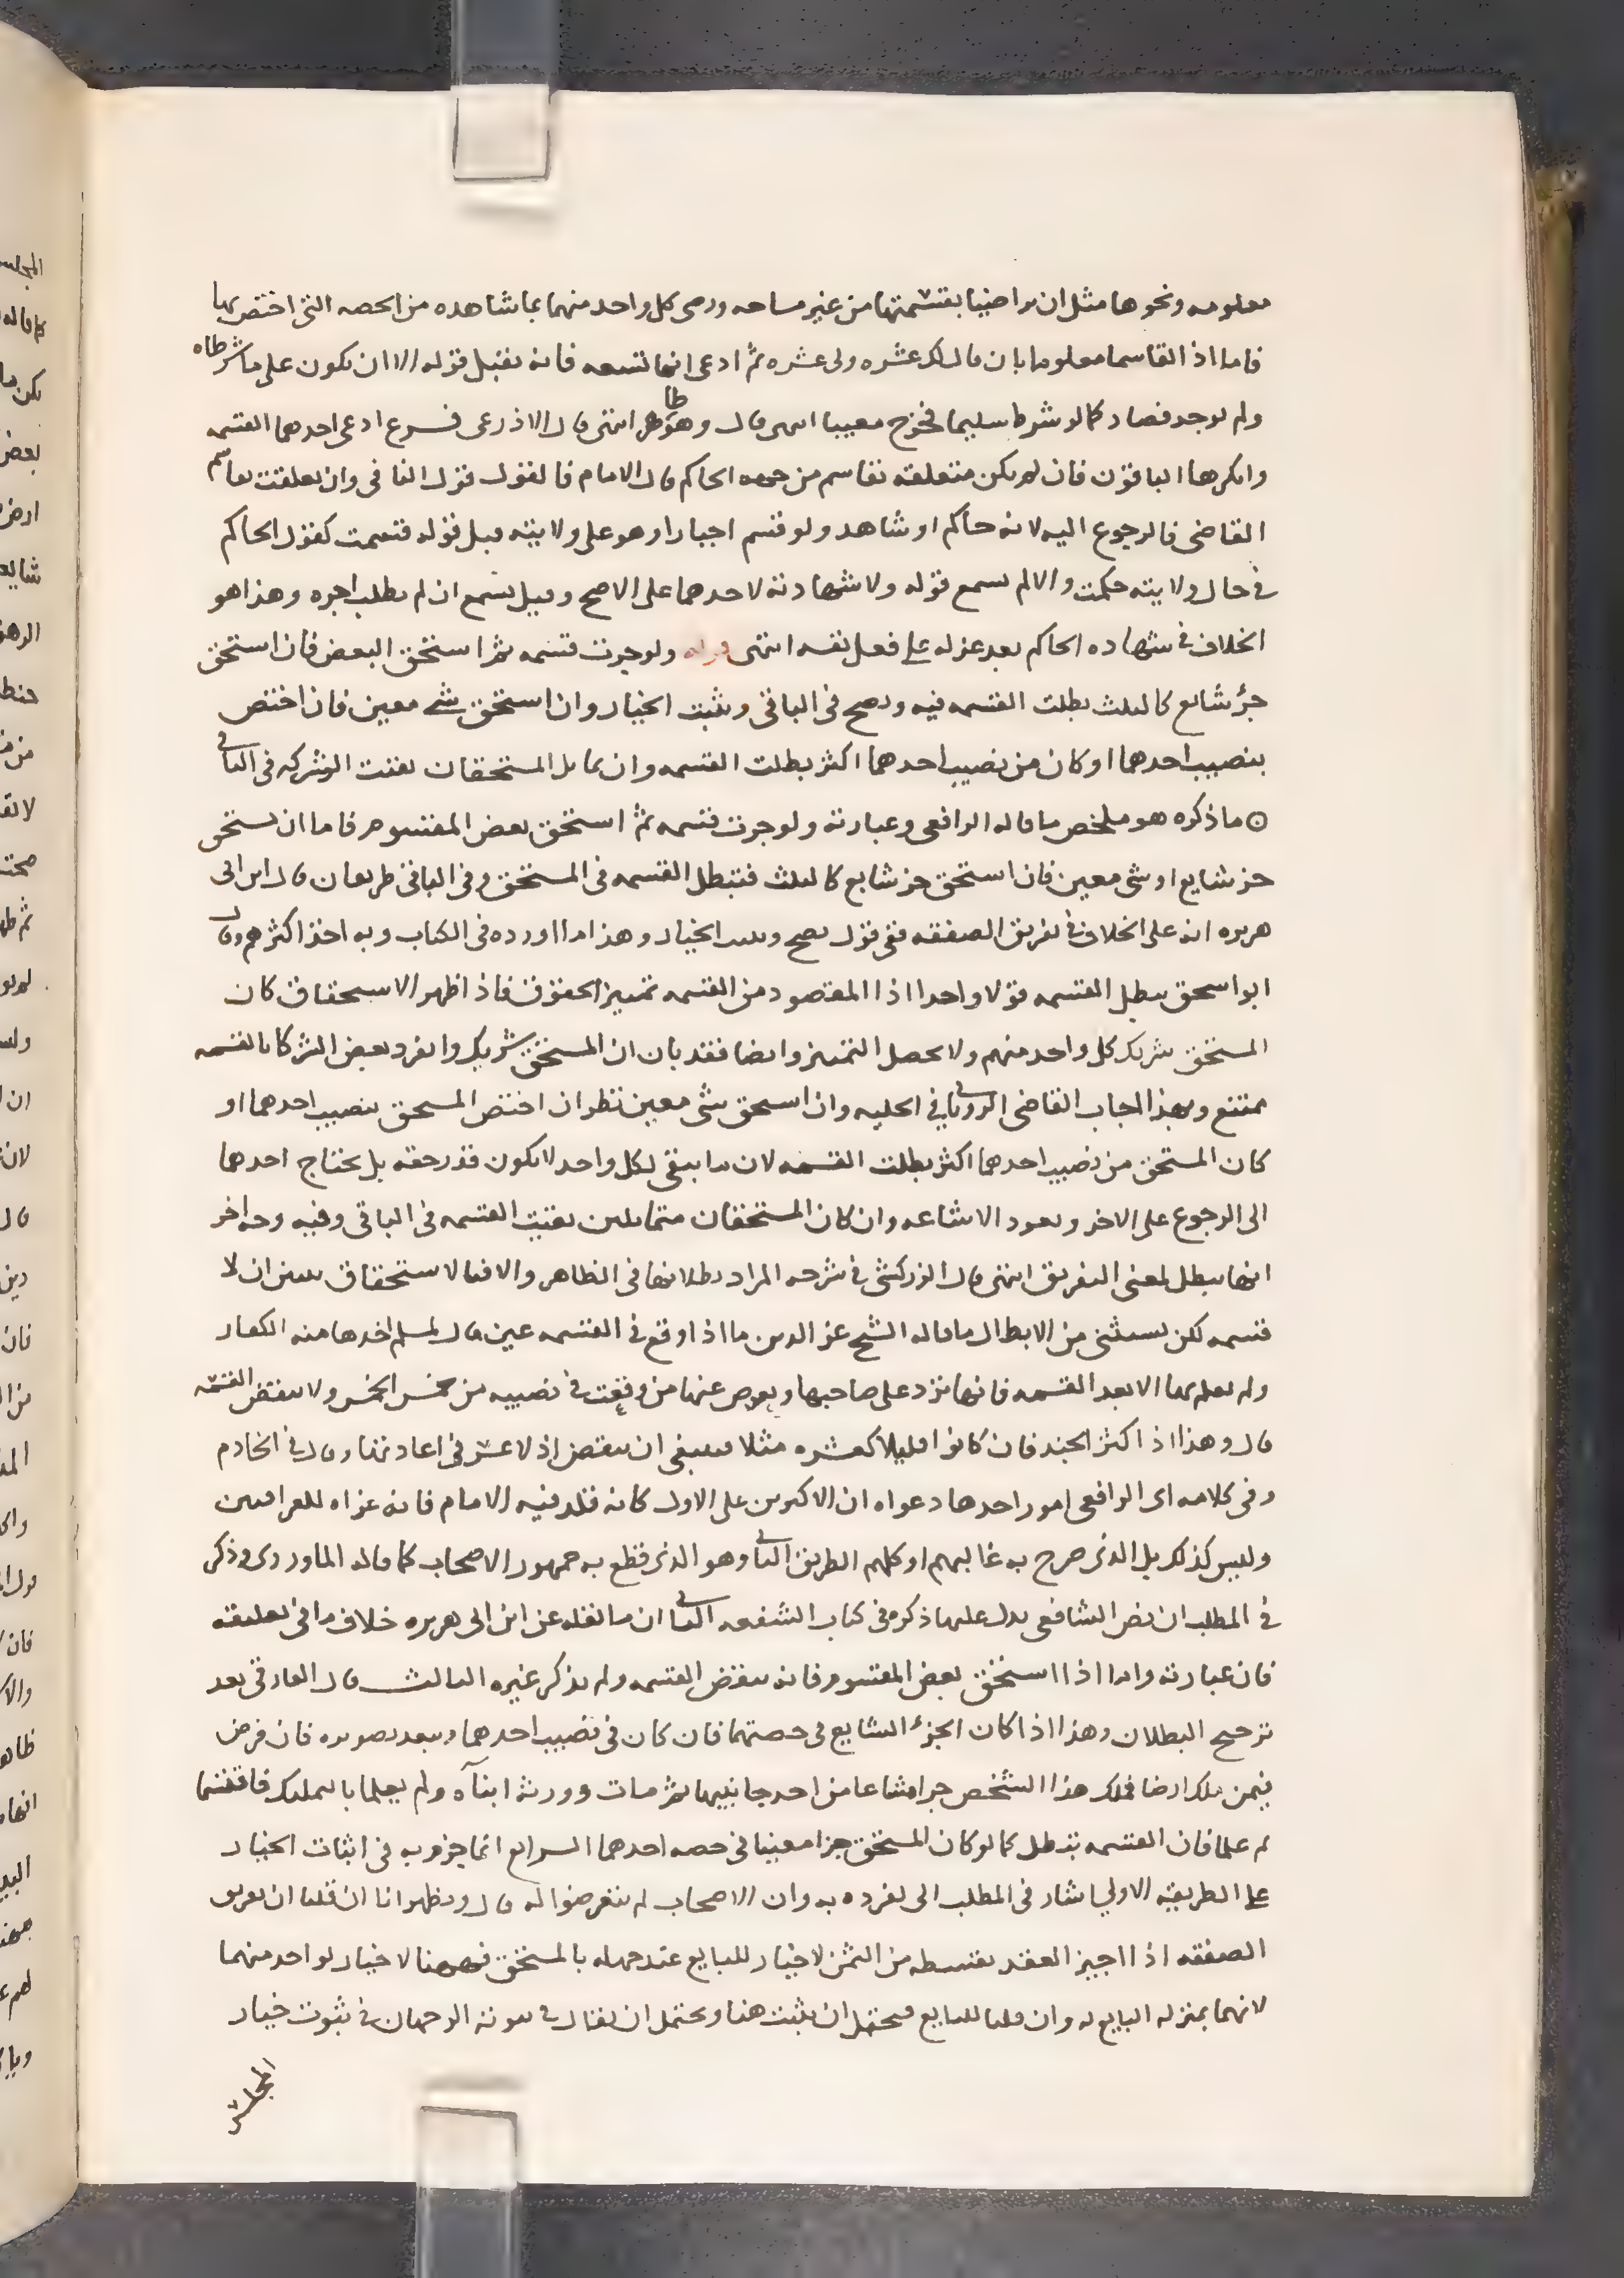 معلومه ونحوها مثل ان تراضيا بقسمتها من غير مساحه ورضى كل واحد منهما بما شاهده من الحصه التى اختص بها
فاما اذا تقاسما معلوما بان قال لك عشره ولى عشره ثم ادعى انها تسعه فانه يقبل قوله الا ان يكون على ما شرطاه
ولم يوجد فصار كما لو شرط سليما فخرج معيبا انتهى قال وهو ظاهر انتهى قال الاذرعى فرع ادعى احدهما القسمه
وانكرها الباقون فان لم يكن متعلقه تقاسم من جهه الحاكم قال الامام فالقول قول النافى وان تعلقت بقاسم
القاضى فالرجوع اليه لانه حاكم او شاهد ولو قسم اجبارا وهو على ولايته قبل قوله قسمت كقول الحاكم
فى حال ولايته حكمت والا لم يسمع قوله ولا شهادته لاحدهما على الاصح وقيل يسمع ان لم يطلب اجره وهذا هو
الخلاف فى شهاده الحاكم بعد عزله على فعل نفسه انتهى قوله ولو جرت قسمه ثم استحق البعض فان استحق
جزؤ شايع كالثلث بطلت القسمه فيه وتصح فى الباقى ويثبت الخيار وان استحق شى معين فان اختص
بنصيب احدهما او كان من نصيب احدهما اكثر بطلت القسمه وان تماثل المستحقان بقيت الشركه فى الباقى
ما ذكره هو ملخص ما قاله الرافعى وعبارته ولو جرت قسمه ثم استحق بعض المقسوم فاما ان يستحق
جز شايع او شى معين فان استحق جز شايع كالثلث فتبطل القسمه فى المستحق وفى الباقى طريقان قال ابن ابى
هريره انه على الخلاف فى تفريق الصفقه ففى قول يصح ويثبت الخيار وهذا ما اورده فى الكتاب وبه اخذ اكثرهم وقال
ابو اسحق تبطل القسمه قولا واحدا اذا المقصود من القسمه تمييز الحقوق فاذا ظهر الاستحقاق كان
المستحق شريك كل واحد منهم ولا يحصل التمييز وايضا فقد بان ان المستحق شريك وانفرد بعض الشركا بالقسمه
ممتنع وبهذا اجاب القاضى الرويانى فى الحليه وان استحق شى معين نظر ان اختص المستحق بنصيب احدهما او
كان المستحق من نصيب احدهما اكثر بطلت القسمه لان ما يبقى لكل واحد لا يكون قدر حقه بل يحتاج احدهما
الى الرجوع على الاخر وتعود الاشاعه وان كان المستحقان متماثلين بقيت القسمه فى الباقى وفيه وجه اخر
انها تبطل لمعنى التفريق انتهى قال الزركشى فى شرحه المراد بطلانها فى الظاهر والا فبالاستحقاق تبين ان لا
قسمه لكن يستثنى من الابطال ما قاله الشيخ عز الدين ما اذا وقع فى القسمه عين مال لمسلم اخذها منه الكفار
ولم يعلم بها الا بعد القسمه فانها ترد على صاحبها ويعوض عنها من وقعت فى نصيبه من خمس الخمس ولا تنقض القسمه
قال وهذا اذا كثر الجند فان كانوا قليلا كعشره مثلا فينبغى ان تنقض اذ لا عسر فى اعادتها وقال فى الخادم
وفى كلامه اى الرافعى امور احدها دعواه ان الاكثرين على الاول كانه قلد فيه الامام فانه عزاه للعراقيين
وليس كذلك بل الذى صرح به غالبهم او كلهم الطريق الثانى وهو الذى قطع به جمهور الاصحاب كما قاله الماوردى وذكر
فى المطلب ان نص الشافعى يدل عليها ذكره فى كتاب الشفعه الثانى ان ما نقله عن ابن ابى هريره خلاف ما فى تعليقه
فان عبارته واما اذا استحق بعض المقسوم فانه تنقض القسمه ولم يذكر غيره الثالث قال الفارقى بعد
ترجيح البطلان وهذا اذا كان الجزء الشايع فى حصتهما فان كان فى نصيب احدهما ويبعد تصويره فان فرض
فيمن ملك ارضا فملك هذا الشخص جزا مشاعا من احد جانبيها ثم مات وورثه ابناه ولم يعلما بالتمليك فاقتسما
ثم علما فان القسمه تبطل كما لو كان المستحق جزا معينا فى حصه احدهما الرابع انما جزم به فى اثبات الخيار
على الطريقه الاولى اشار فى المطلب الى تفرده به وان الاصحاب لم يتعرضوا له قال ويظهر انا ان قلنا ان تفريق
الصفقه اذا اجيز العقد بقسطه من الثمن لا خيار للبايع عند جهله بالمستحق فههنا لا خيار لواحد منهما
لانهما بمنزله البايع له وان قلنا للبايع فيحتمل ان يثبت هنا ويحتمل ان يقال فى ثبوته الوجهان فى ثبوت خيار
المجلس